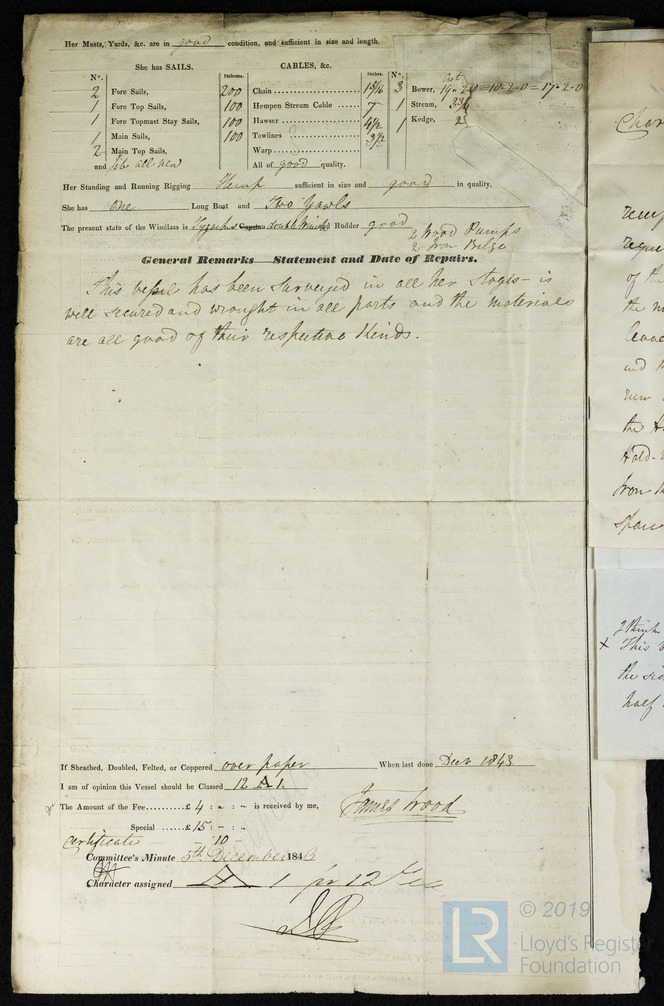 Her Masts, Yards, &c. are in good condition, and sufficient in size and length.
She has SAILS.
CABLES, &c.
N°. Fathoms. Inches. N°.
2 Fore Sails, 200 Chain 15/16 3 Bower,
1 Fore Top Sails, 100 Hempen Stream Cable 7 1 Stream,
1 Fore Topmast Stay Sails, 100 Hawser 4 1/2 1 Kedge,
1 Main Sails, 100 Towlines 3 1/2
2 Main Top Sails, Warp
and all new All of good quality.
Her Standing and Running Rigging Hemp sufficient in size and good in quality.
She has one Long Boat and Two Yawls
The present state of the Windlass is double and Rudder good 2 Wood Pumps
2 Iron Bilge
General Remarks Statement and Date of Repairs.
This vessel has been surveyed in all her stages is
well secured and wrought in all parts and the materials
are all good of their respective Kinds.
If Sheathed, Doubled, Felted, or Coppered over paper When last done Decr 1843
I am of opinion this Vessel should be Classed 12 A 1.
The Amount of the Fee £ 4 : - : - is received by me, James Wood
Special £ 15 : - : -
Certificate - 10 -
Committee's Minute 5th December 1843
Character assigned A 1 for 12 Yea
Char
of the
the m
and
the
Hold
Iron
Spac
I think
× This
the
half
LR
© 2019
Lloyd's Register
Foundation